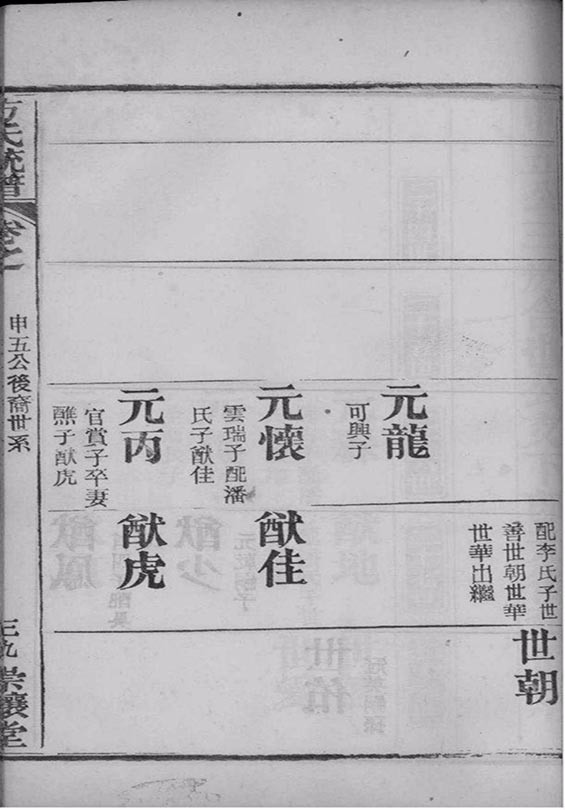 配李氏子世
善世朝世華
世華出繼
世朝
元龍
可興子
元懷
雲瑞子配潘
氏子猷佳
猷佳
元丙
官賞子卒妻
醮子猷虎
猷虎
方氏統譜
卷之一
申五公後裔世系
三九